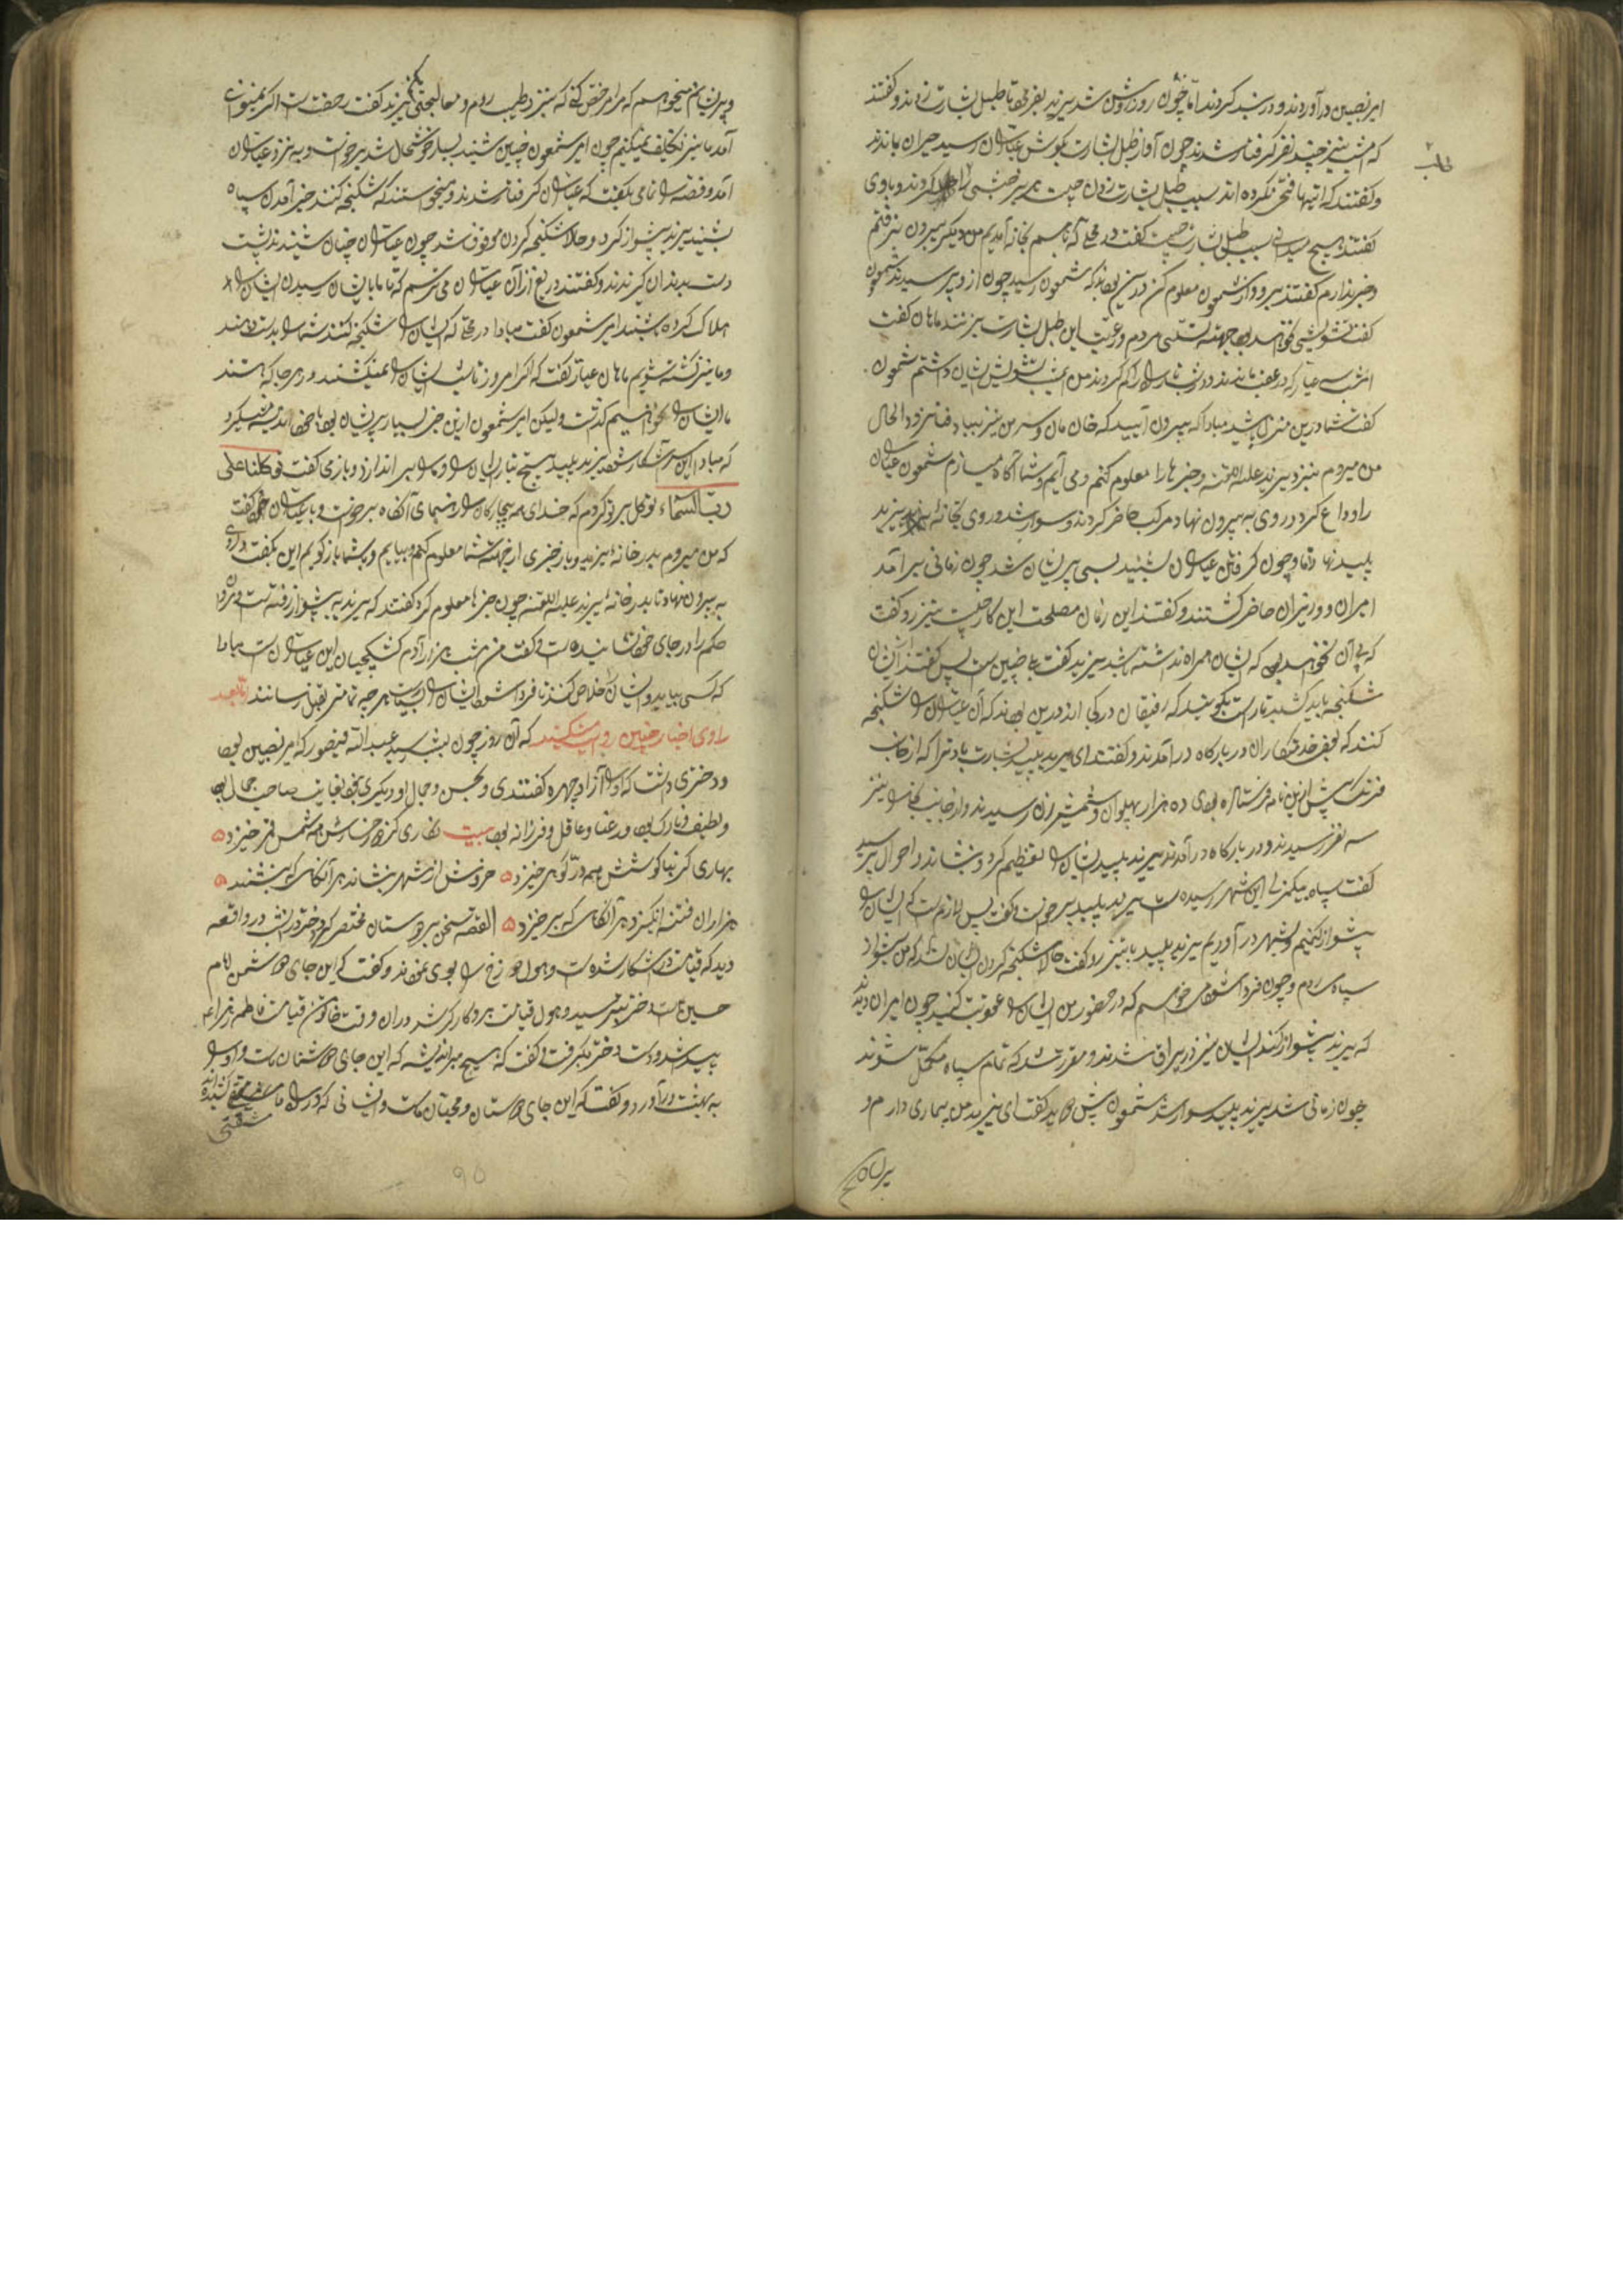 امیر نصیبین در آوردند و در بند کردند اما چون روز روشن شد یزید بفرمود تا طبل بشارت زدند و گفتند
که امشب نیز چند نفر گرفتار شدند چون آواز طبل بشارت بگوش عیاران رسید حیران بماندند
و گفتند که اینها فتحی نکرده اند سبب طبل بشارت زدن چیست
گفتند هیچ میدانی سبب طبل بشارت چیست گفت در محلی که تا بسم بخانه آمدیم من دیگر بیرون نرفتم
و خبر ندارم گفتند برو و از شمعون معلوم کن درین بودند که شمعون رسید چون از وی پرسیدند شمعون
گفت تشویشی نخواهد بود جهت تسلی مردم و رعیت این طبل بشارت میزنند ماهان گفت
امشب سه عیار که در عقب ماندند من امشب تشویش ایشان داشتم شمعون
گفت شما درین منزل باشید مبادا که بیرون آیید که خان مان و سر من نیز بباد فنا رود الحال
من میروم بنزد یزید علیه اللعنه و خبرها را معلوم کنم و می آیم و شما را آگاه میسازم شمعون عیاران
را وداع کرد و روی به بیرون نهاد مرکب حاضر کردند و سوار شد و روی بخانه یزید
پلید نهاد و چون گرفتن عیاران بشنید بسی پریشان شد چون زمانی برآمد
امیران و وزیران حاضر گشتند و گفتند این زمان مصلحت این کار چیست بنیز رو گفت
که بی آن نخواهد بود که ایشان همراه نداشته باشد یزید گفت بلی چنین است پس گفتند ایشان را
شکنجه باید کشید تا راست بگویند که رفیقان در کجا اند درین بودند که آن عیاران را شکنجه
کنند که بعضی خدمتکاران در بارگاه در آمدند و گفتند ای یزید پلید بشارت باد ترا که از جانب
فرنگ که پیش ازین نامه فرستاده بودی ده هزار پهلوان و شمشیر زن رسیدند و از جانب نیز
سه نفر رسیدند و در بارگاه در آمدند یزید پلید ایشان را تعظیم کرد و بنشاند و احوال پرسید
گفت سپاه بیکمنزلی این شهر رسیده است یزید پلید برخواست و گفت پس لازم است که ایشان را
پیشواز کنیم و بشهر در آوریم یزید پلید با بنیز رو گفت حالا شکنجه کردن ایشان نشد که من پیشواز
سپاه روم و چون فردا شود میخواهم که در حضور من ایشان را عقوبت کنید چون امیران دیدند
که یزید پیشواز کند ایشان نیز در یراق شدند و مقرر شد که تمام سپاه مکمل شوند
چون زمانی شد یزید پلید سوار شد شمعون پیش دوید گفت ای یزید من بیماری دارم و
پریشان
و پریشانم میخواهم که مرا مرخص کنی که بنزد طبیب روم و معالجتی کنم یزید گفت رخصت است اگر بنتوانی
آمد ما نیز تکلیف نمیکنیم چون امیر شمعون چنین شنید بسیار خوشحال شد برخواست و به نزد عیاران
آمد و قصه را تمامی بگفت که عیاران گرفتار شدند و میخواستند که شکنجه کنند خبر آمدن سپاه
بشنید یزید پیشواز کرد و حالا شکنجه کردن موقوف شد چون عیاران چنان شنیدند پشت
دست بدندان گزیدند و گفتند دریغ از آن عیاران می ترسم که تا ما بایشان رسیدن ایشان را
هلاک کرده باشند امیر شمعون گفت مبادا در محلی که ایشان را شکنجه کنند شما را بدست دهند
و ما نیز کشته شویم ماهان عیار گفت که اگر امروز تا شب ایشان را نمیکشند در هر جا که هستند
ما ایشان را نخواهیم گذاشت ولیکن امیر شمعون ازین خبر بسیار پریشان بود با خود اندیشه میکرد
که مبادا این سر آشکار شود یزید پلید هیچ تبار ایشان را و ما را بر اندازد و باز می گفت توکلنا علی
رب السماء توکل بر تو کردم که خدای همه بیچارگان را رهنمای آنگاه برخواست و با عیاران خود گفت
که من میروم بدر خانه یزید و باز خبری از جهت شما معلوم کنم و بیایم و بشما باز گویم این بگفت و روی
به بیرون نهاد تا بدر خانه یزید علیه اللعنه چون خبرها معلوم کرد گفتند که یزید به پیشواز رفته است و مروان
حکم را در جای خود نشانیده است و گفت من شب هزار آدم کشیکچیان این عیاران است مبادا
که کسی بیاید و ایشان را خلاص کند تا فردا شود ایشان را بسیاست هر چه تمامتر بقتل رسانند اما بعد
راوی اخبار چنین روایت میکند که آن روز چون بشب رسید عبدالله قیضور که امیر نصیبین بود
و دختری داشت که او را آزاد چهره گفتندی و بحسن و جمال او دیگری نبود بغایت صاحب جمال بود
و لطیف و نازک بود و رعنا و عاقل و فرزانه بود بیت نگاری کز رخ رخسارش همه شمس و قمر خیزد
بهاری کز بناگوشش همه در و گوهر خیزد خروش از شهر بنشاند هر آنگاهی که بنشیند
هزاران فتنه انگیزد هر آنگاهی که برخیزد القصه سخن بر دوستان مختصر کرد دختر در شب در واقعه
دید که قیامت آشکار شده است و هول دوزخ را بوی نمودند و گفت که این جای دشمن امام
حسین است دختر بترسید و هول قیامت برو کارگر شد در آن وقت خاتون قیامت فاطمه زهرا
پدید شد و دست دختر بگرفت و گفت که هیچ میندیش که این جای دشمنان ماست و او را
به بهشت در آورد و گفت که این جای دوستان و محبان ماست و ایشانی که در راه ما کشیده اند
۹۵